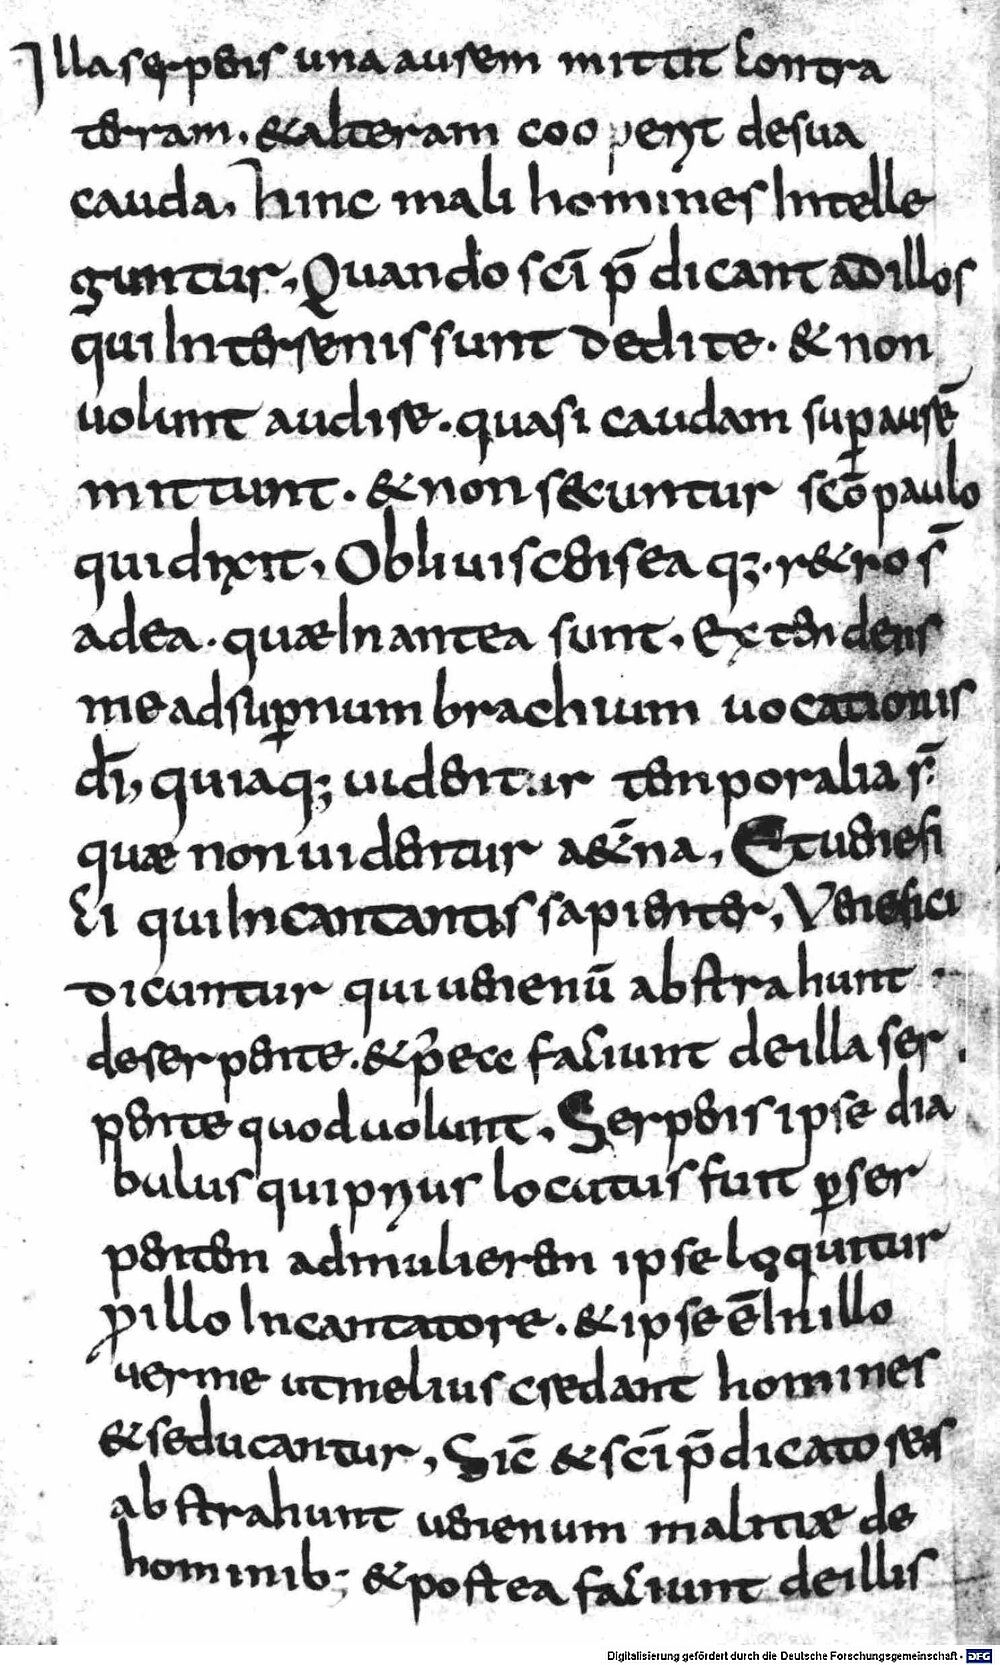 Illa serpens una aurem mittit contra
terram, & alteram cooperit de sua
cauda, hinc mali homines Intelle
guntur, Quando sc̄i p̄dicant ad illos
qui In terrenis sunt dedite. & non
uolunt audire. quasi caudam sup aurē
mittunt. & non secuntur sc̄o paulo
qui dixit, Obliuiscens ea q;. r&ro s̄
ad ea. quæ In antea sunt, extendens
me ad supnum brachium uocationis
dī, quia q; uidentur temporalia s̄.
quæ non uidentur a&̄na, Et uenefi
ci qui Incantantis sapienter, Venefici
dicuntur qui uenenū abstrahunt
de serpente. & p̄ecc faciunt de illa ser
pente quod uolunt, Serpens ipse dia
bulus qui prius locutus fuit p ser
pentem ad mulierem ipse loquitur
p illo Incantatore. & ipse ē In illo
uerme ut melius credant homines
& seducantur, Sic̄ & sc̄i p̄dicatores
abstrahunt uenenum malitiæ de
hominib; & postea faciunt de illis
Digitalisierung gefördert durch die Deutsche Forschungsgemeinschaft - DFG